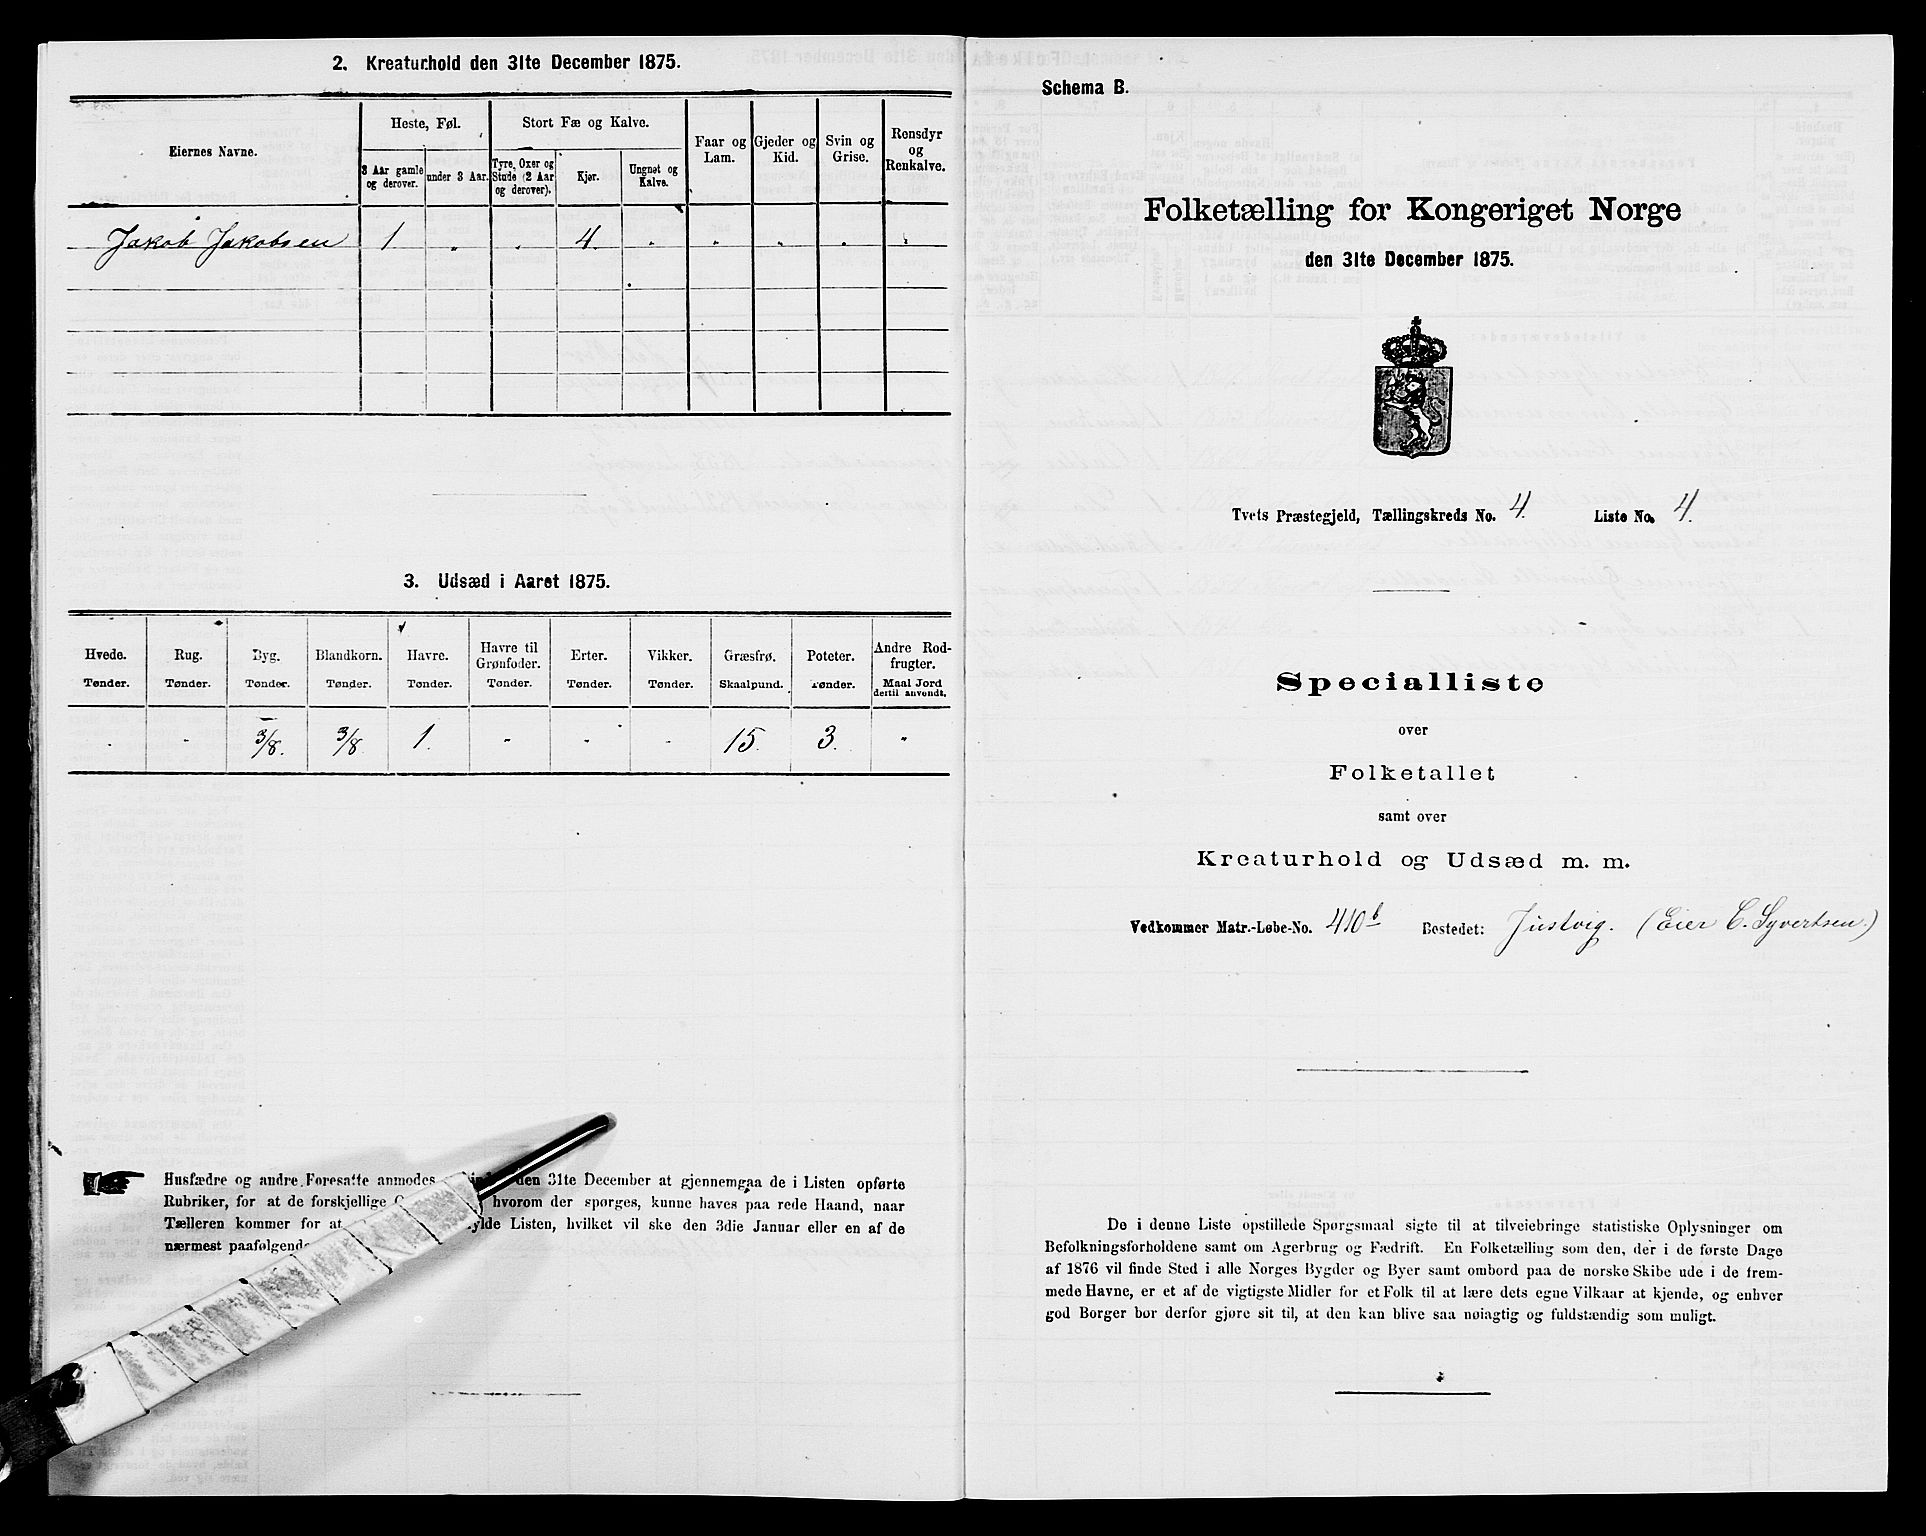 2. Kreaturhold den 31te December 1875.
Eiernes Navne.
Heste, Føl.
Stort Fæ og Kalve.
Faar og Lam.
Gjeder og Kid.
Svin og Grise.
Rensdyr og Renkalve.
3 Aar gamle og derover.
under 3 Aar.
Tyre, Oxer og Stude (2 Aar og derover).
Kjør.
Ungnøt og Kalve.
Jakob Jakobsen 1 „ „ 4. „ „ „ „ „
3. Udsæd i Aaret 1875.
Hvede. Rug. Byg. Blandkorn. Havre. Havre til Grønfoder. Erter. Vikker. Græsfrø. Poteter. Andre Rodfrugter.
Tønder. Tønder. Tønder. Tønder. Tønder. Tønder. Tønder. Tønder. Skaalpund. Tønder. Maal Jord dertil anvendt.
„ „ 3/8. 3/8 1. „ „ „ 15. 3. „
Husfædre og andre Foresatte anmodes den 31te December at gjennemgaa de i Listen opførte
Rubriker, for at de forskjellige hvorom der spørges, kunne haves paa rede Haand, naar
Tælleren kommer for at Listen, hvilket vil ske den 3die Januar eller en af de
nærmest paafølgende
Schema B.
Folketælling for Kongeriget Norge
den 31te December 1875.
Tvets Præstegjeld, Tællingskreds No. 4. Liste No. 4.
Specialliste
over
Folketallet
samt over
Kreaturhold og Udsæd m. m.
Vedkommer Matr.-Løbe-No. 410b Bostedet: Justvig. (Eier C. Syvertsen.)
De i denne Liste opstillede Spørgsmaal sigte til at tilveiebringe statistiske Oplysninger om
Befolkningsforholdene samt om Agerbrug og Fædrift. En Folketælling som den, der i de første Dage
af 1876 vil finde Sted i alle Norges Bygder og Byer samt ombord paa de norske Skibe ude i de frem-
mede Havne, er et af de vigtigste Midler for et Folk til at lære dets egne Vilkaar at kjende, og enhver
god Borger bør derfor gjøre sit til, at den kan blive saa nøiagtig og fuldstændig som muligt.